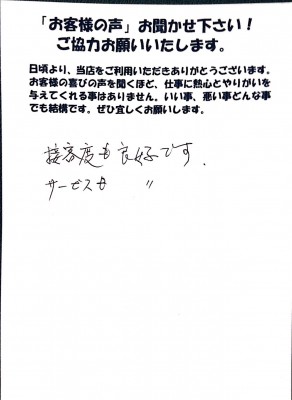 「お客様の声」お聞かせ下さい！
ご協力お願いいたします。
日頃より、当店をご利用いただきありがとうございます。
お客様の喜びの声を聞くほど、仕事に熱心とやりがいを
与えてくれる事はありません。いい事、悪い事どんな事
でも結構です。ぜひ宜しくお願いします。
接客度も良好です.
サービスも 〃